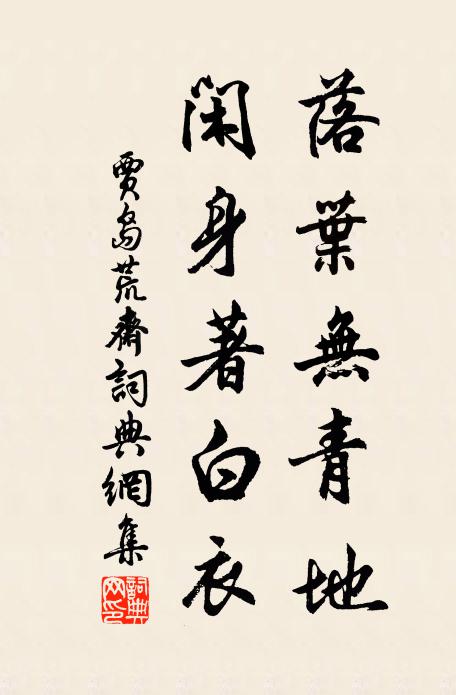 落葉無青地
閑身著白衣
賈島荒齋詞典網集
詞典网印